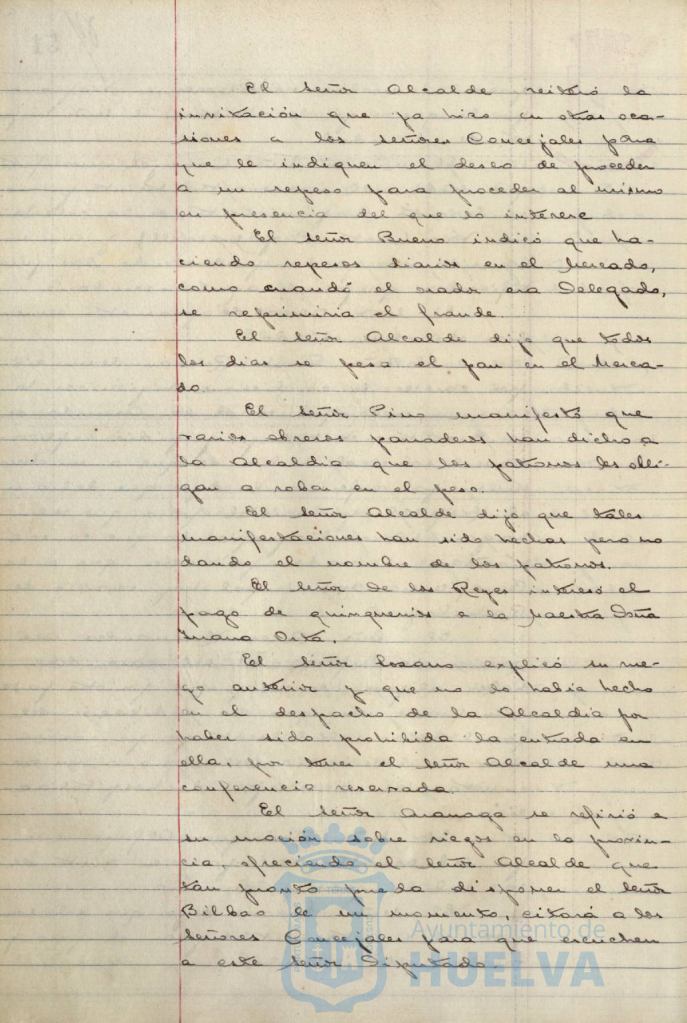 El señor Alcalde reiteró la
invitación que ya hizo en otras oca-
siones a los señores Concejales para
que le indiquen el deseo de proceder
a un repeso para proceder al mismo
en presencia del que lo interese
El señor Bueno indicó que ha-
ciendo repesos diarios en el Mercado,
como cuando el orador era Delegado,
se reprimiria el fraude.
El señor Alcalde dijo que todos
los dias se pesa el pan en el Merca-
do.
El señor Pino manifestó que
varios obreros panaderos han dicho a
la Alcaldia que los patronos les obli-
gan a robar en el peso.
El señor Alcalde dijo que tales
manifestaciones han sido hechas pero no
dando el nombre de los patronos.
El señor de los Reyes interesó el
pago de quinquenios a la Maestra Doña
Juana
El señor Lozano explicó su rue-
go anterior y que no lo habia hecho
en el despacho de la Alcaldia por
haber sido prohibida la entrada en
ella, por tener el señor Alcalde una
conferencia reservada.
El señor se refirió a
su moción sobre riegos en la provin-
cia, ofreciendo el señor Alcalde que
tan pronto pueda disponer el señor
Bilbao de un momento, citará a los
señores Concejales para que escuchen
a este señor Diputado.
Ayuntamiento de
HUELVA